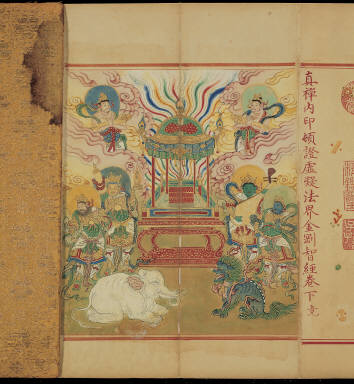 真禪内印頓證虛凝法界金剛智經卷下竟